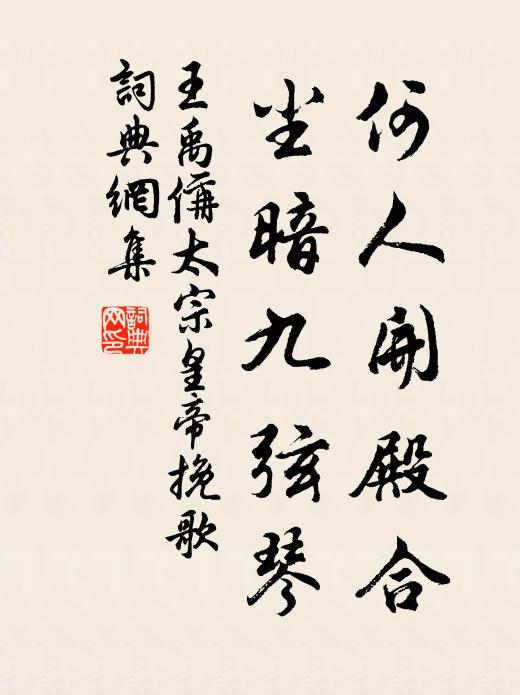 何人開殿合
尘暗九弦琴
王禹偁太宗皇帝挽歌
詞典網集
詞典网印